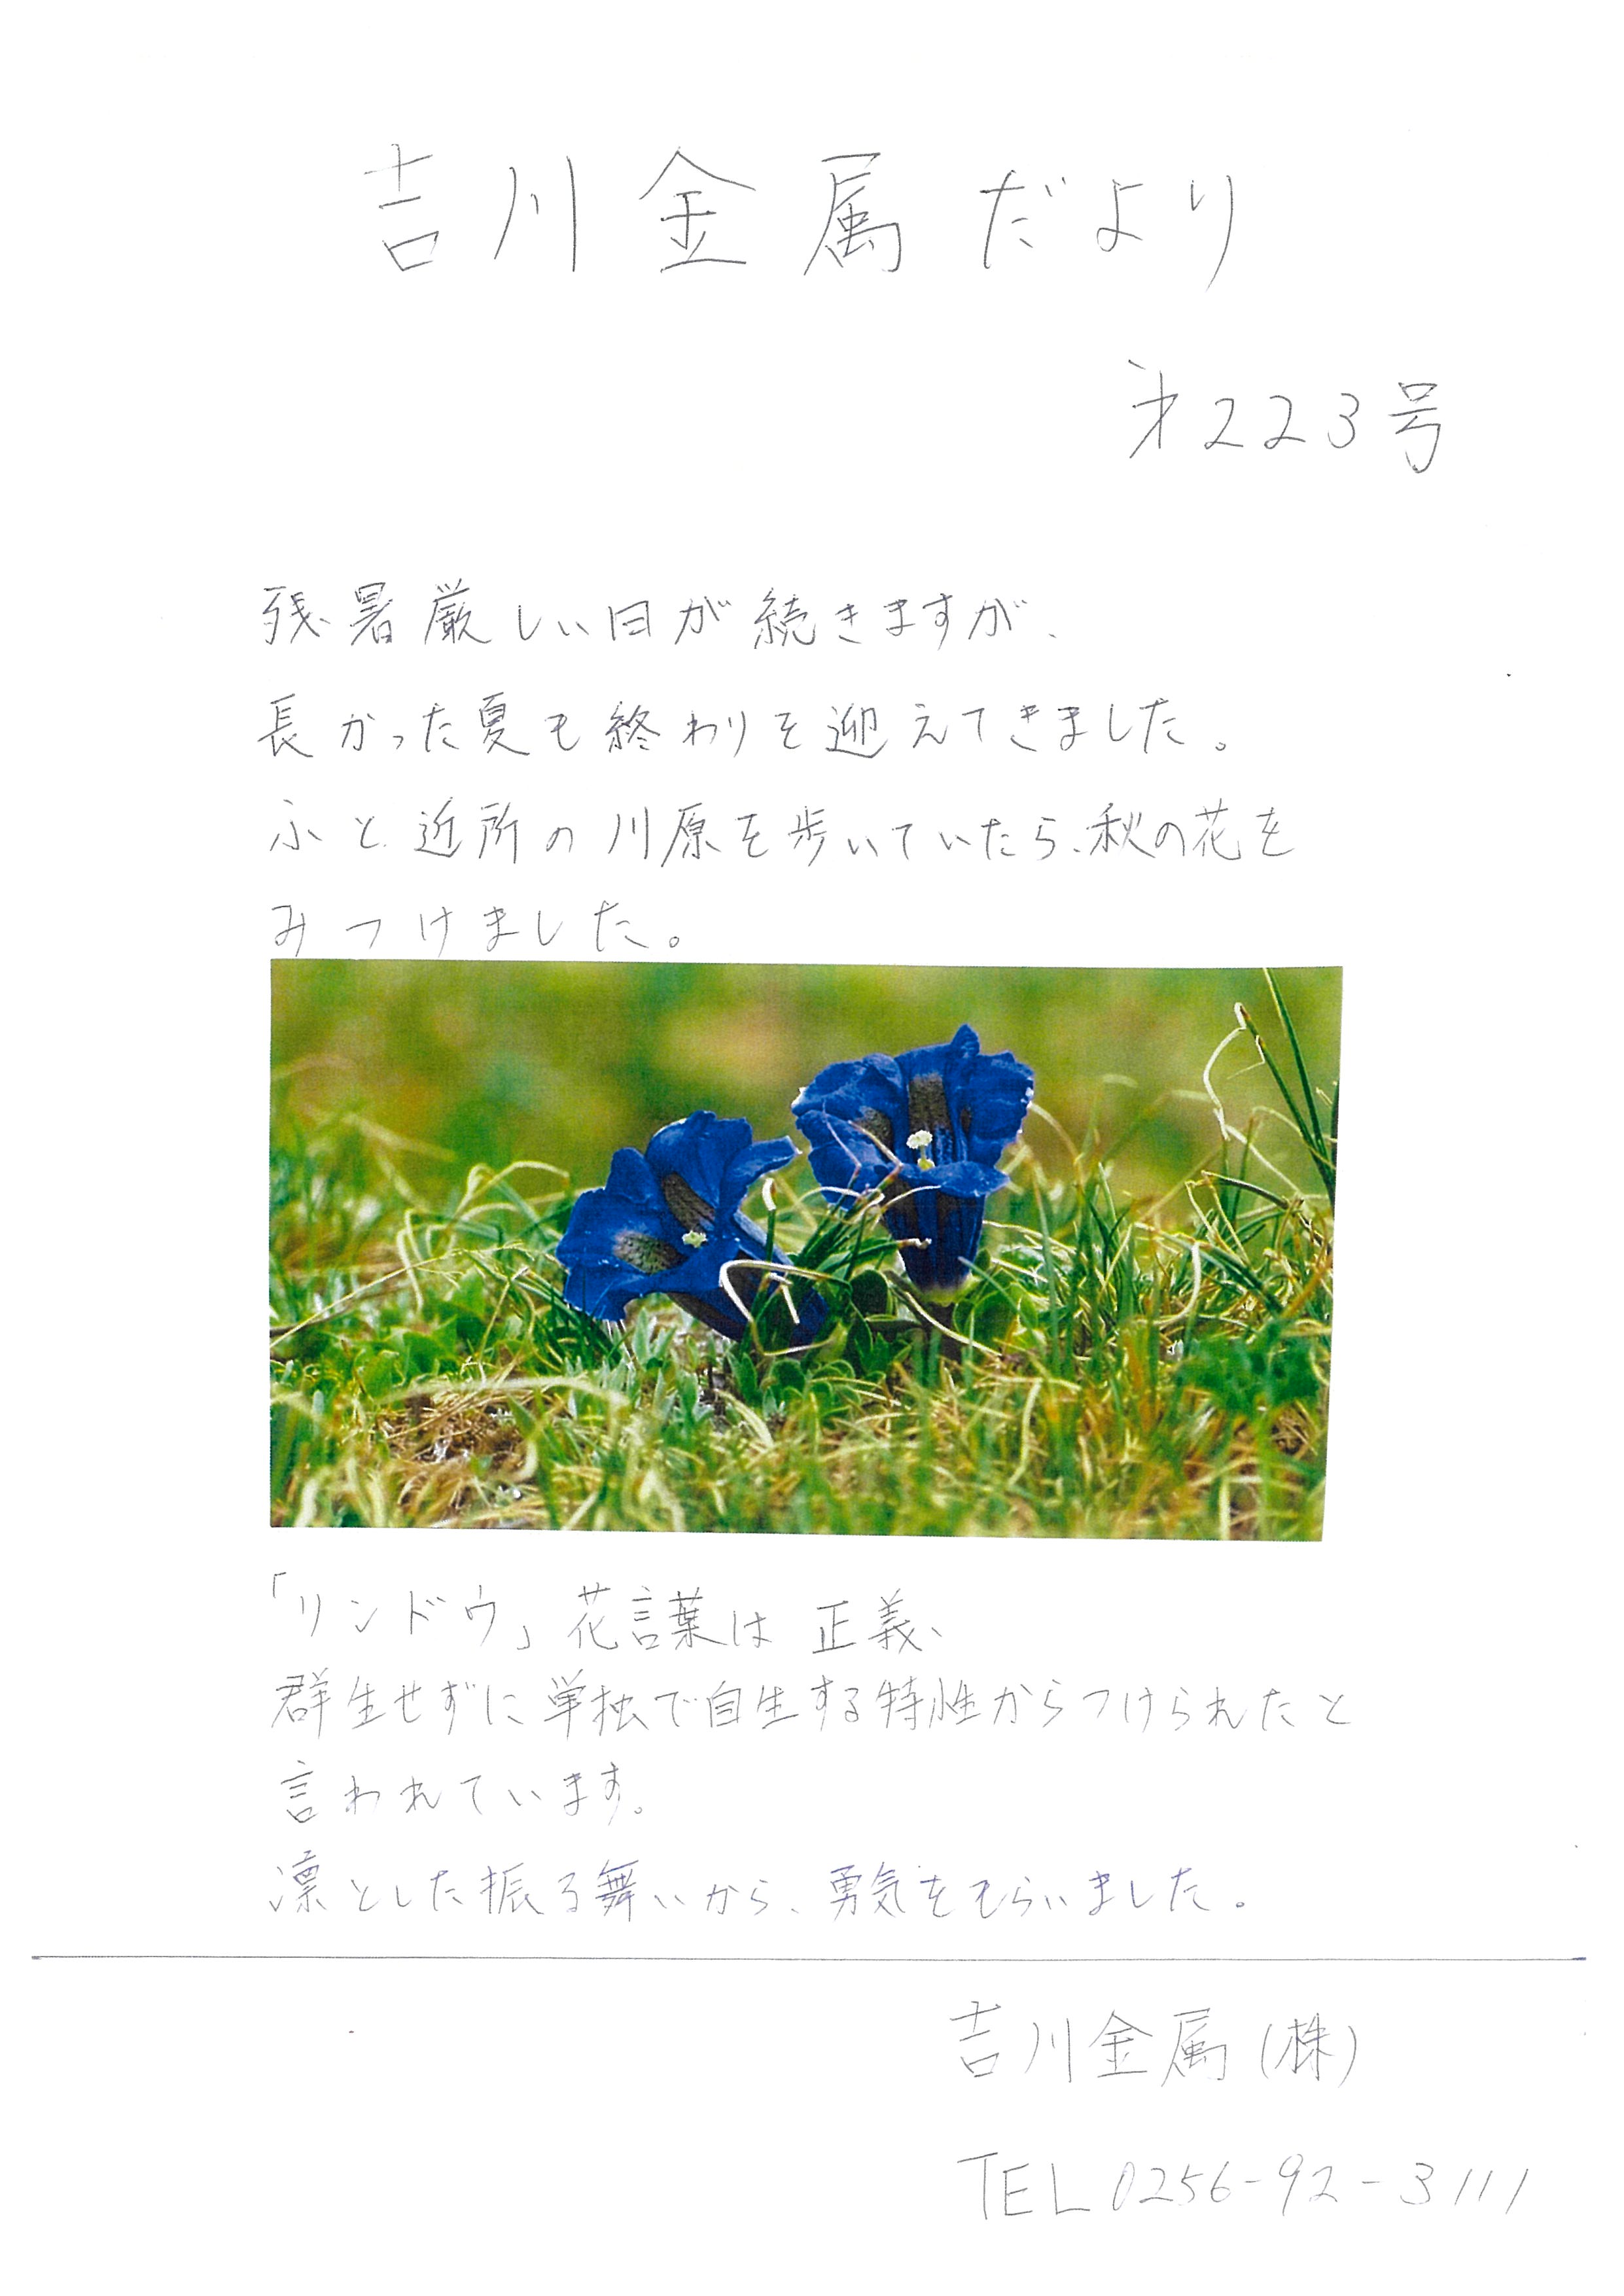 吉川金属だより
第223号
残暑厳しい日が続きますが、
長かった夏も終わりを迎えてきました。
ふと近所の川原を歩いていたら、秋の花を
みつけました。
「リンドウ」花言葉は 正義、
群生せずに単独で自生する特性からつけられたと
言われています。
凛とした振る舞いから、勇気をもらいました。
吉川金属(株)
TEL 0256-92-3111